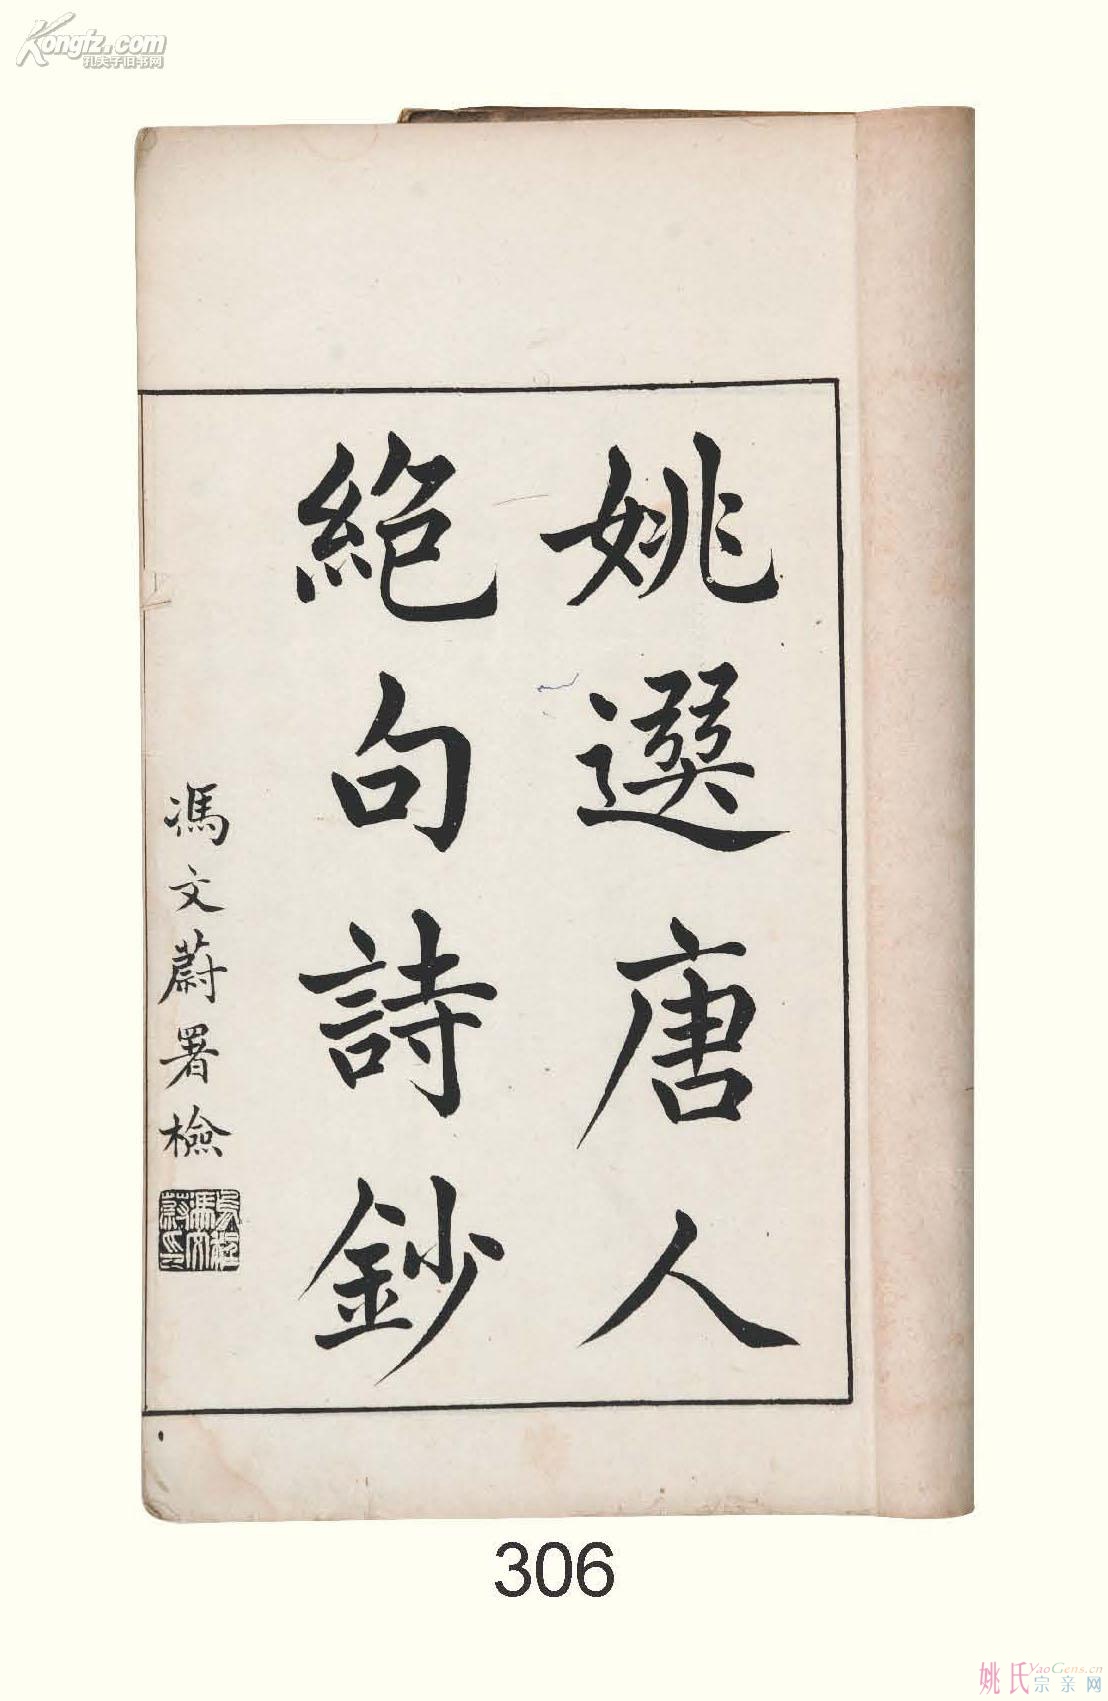 Kongfz.com
孔夫子旧书网
姚選唐人
絕句詩鈔
馮文蔚署檢
306
姚氏
YaoGens.cn
宗亲网